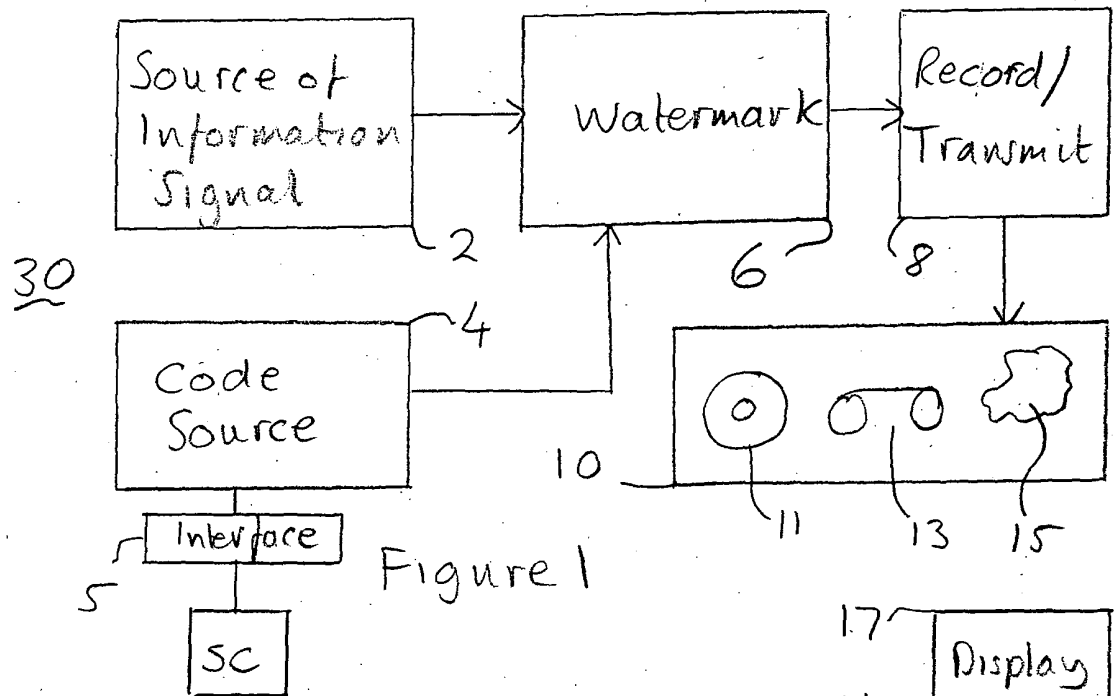 Source of
Information
Signal
2
Watermark
6
Record/
Transmit
8
30
4
Code
Source
10
11
13
15
5
Interface
Figure 1
SC
17
Display